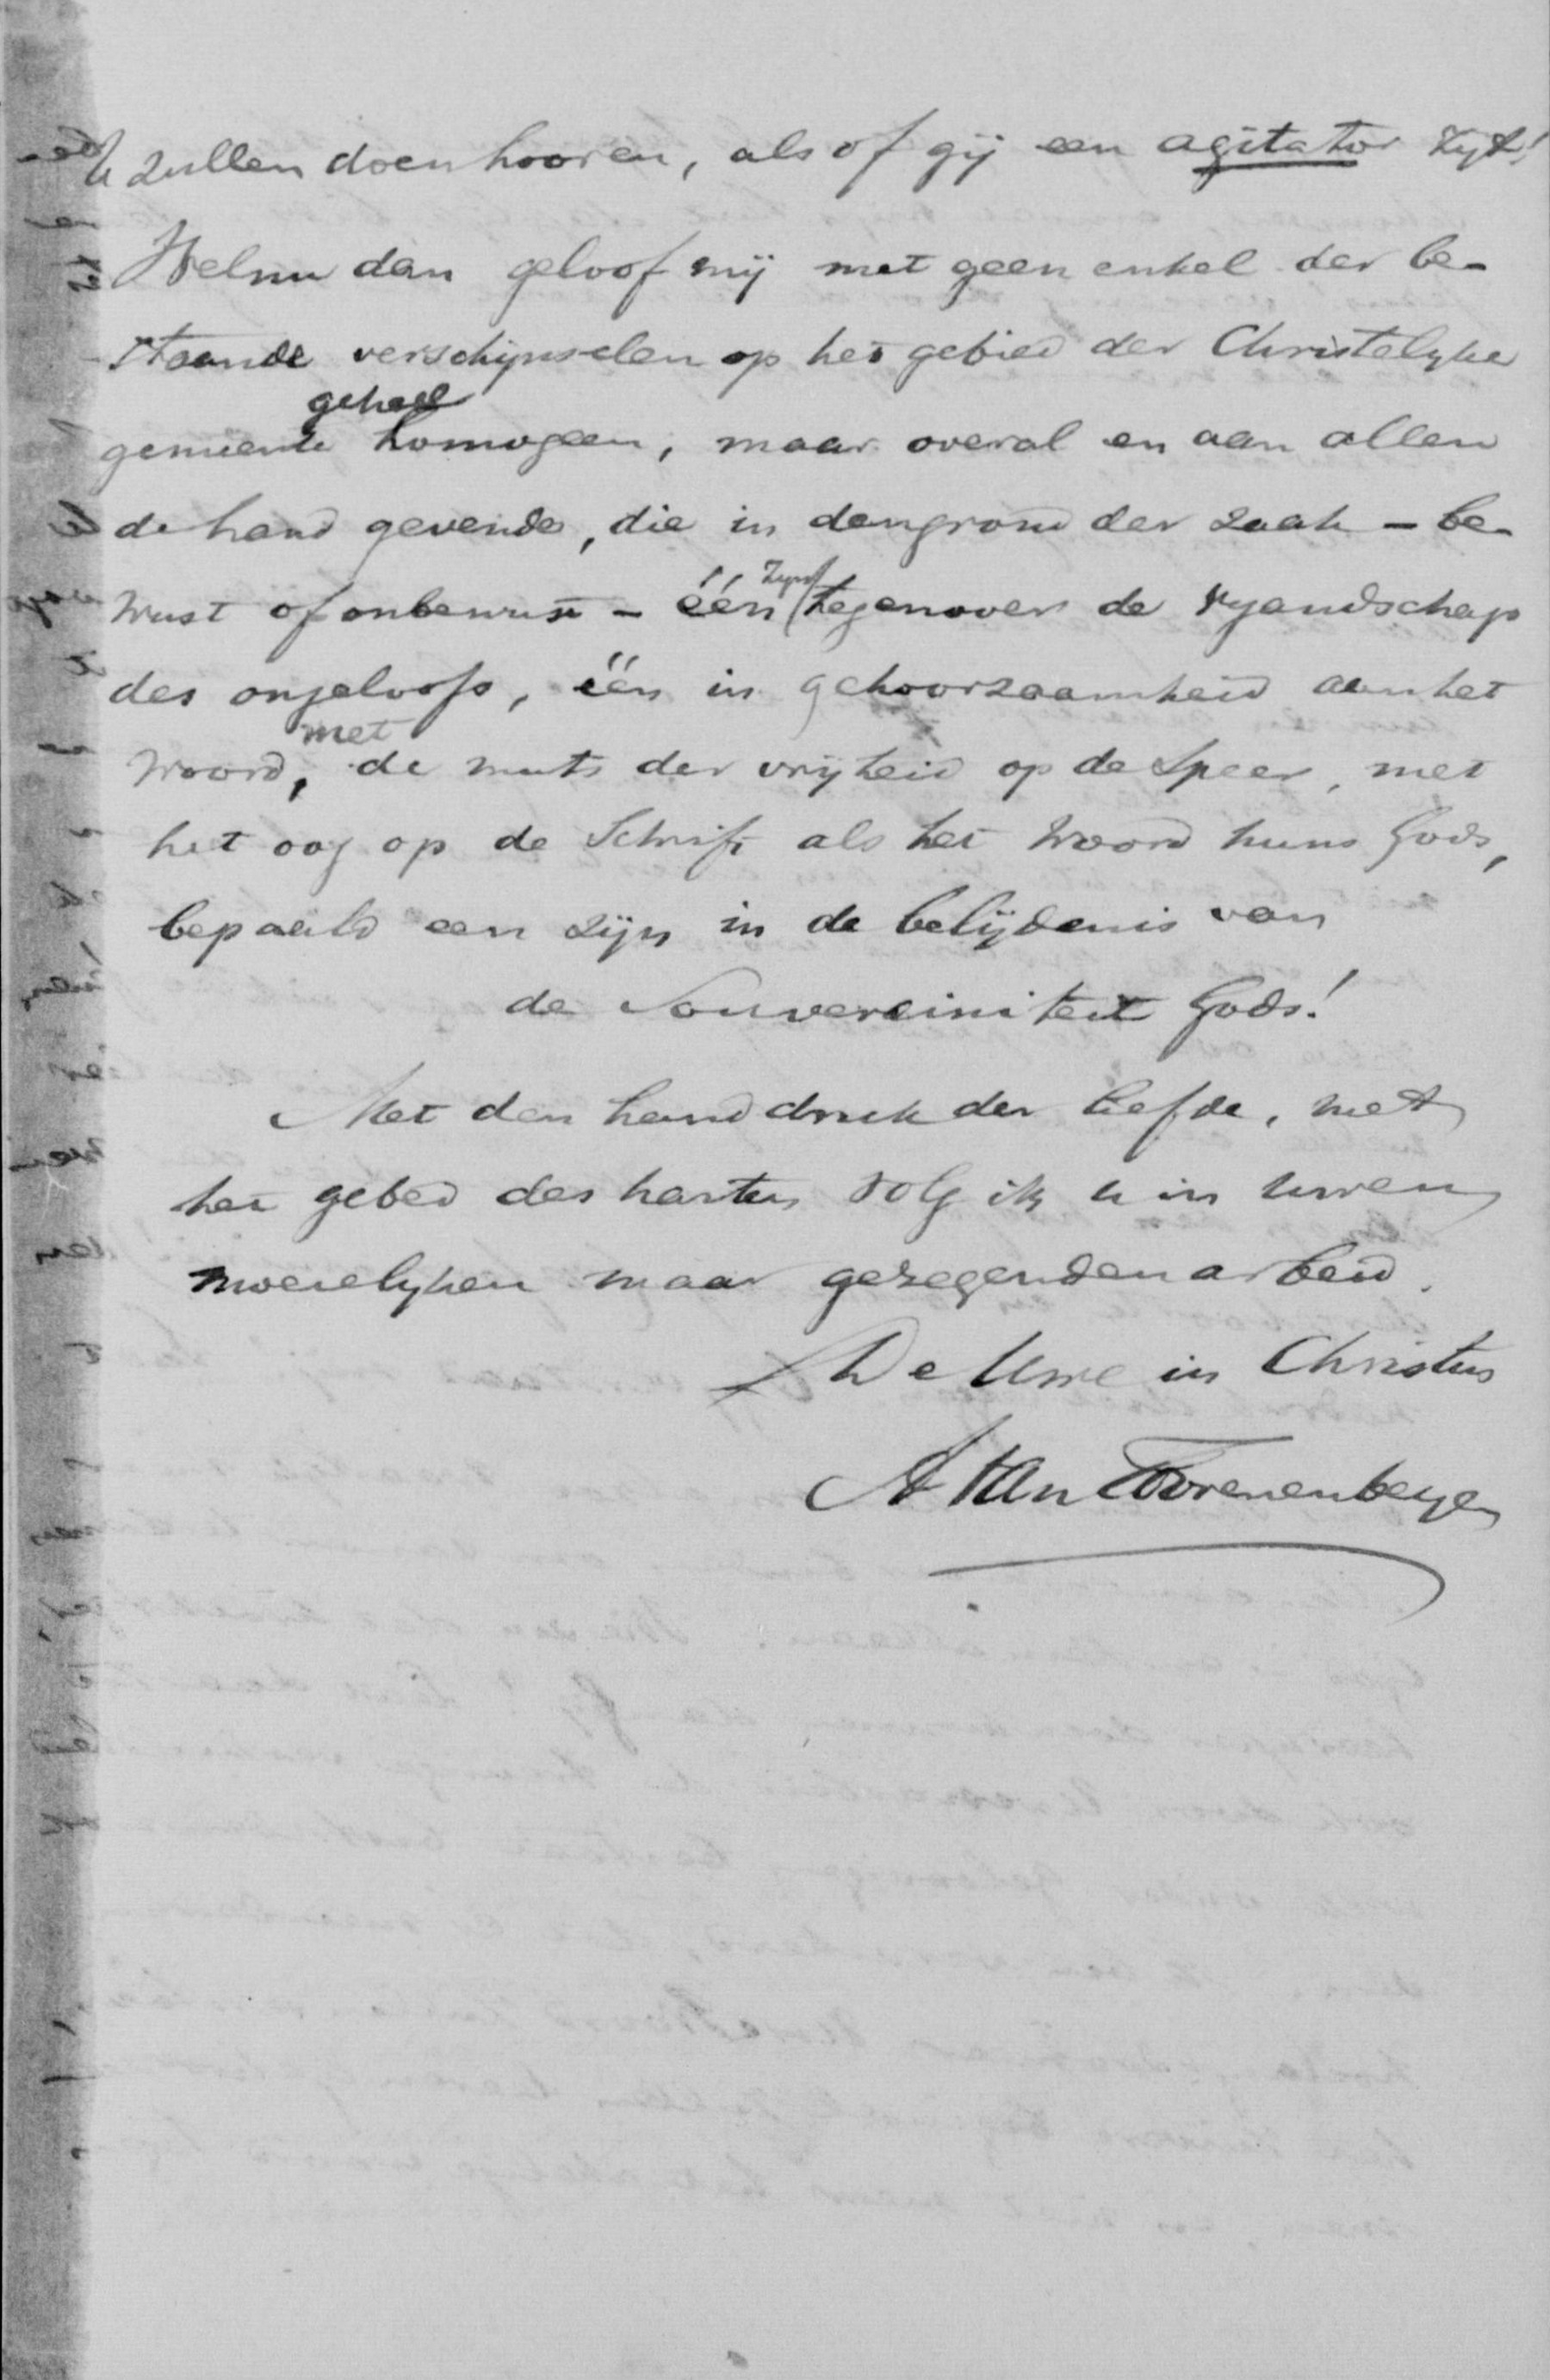 U zullen doen hooren, alsof gij een agitator zijt!
Welnu dan geloof mij met geen enkel der be-
staande verschijnselen op het gebied der Christelyke
geheel
gemeente homogeen, maar overal en aan allen
de hand gevende, die in den grond der zaak - be-
zyn
wust of onbewust - één tegenover de vyandschap
des ongeloofs, één in gehoorzaamheid aan het
met
Woord, de muts der vrijheid op de Speer, met
het oog op de Schrift als het Woord huns Gods,
bepaald een zijn in de belijdenis van
de Souvereiniteit Gods!
Met den handdruk der liefde, met
het gebed des harten volg ik u in uwen
moeielyken maar gezegenden arbeid.
De Uwe in Christus
A van Toorenenbergen